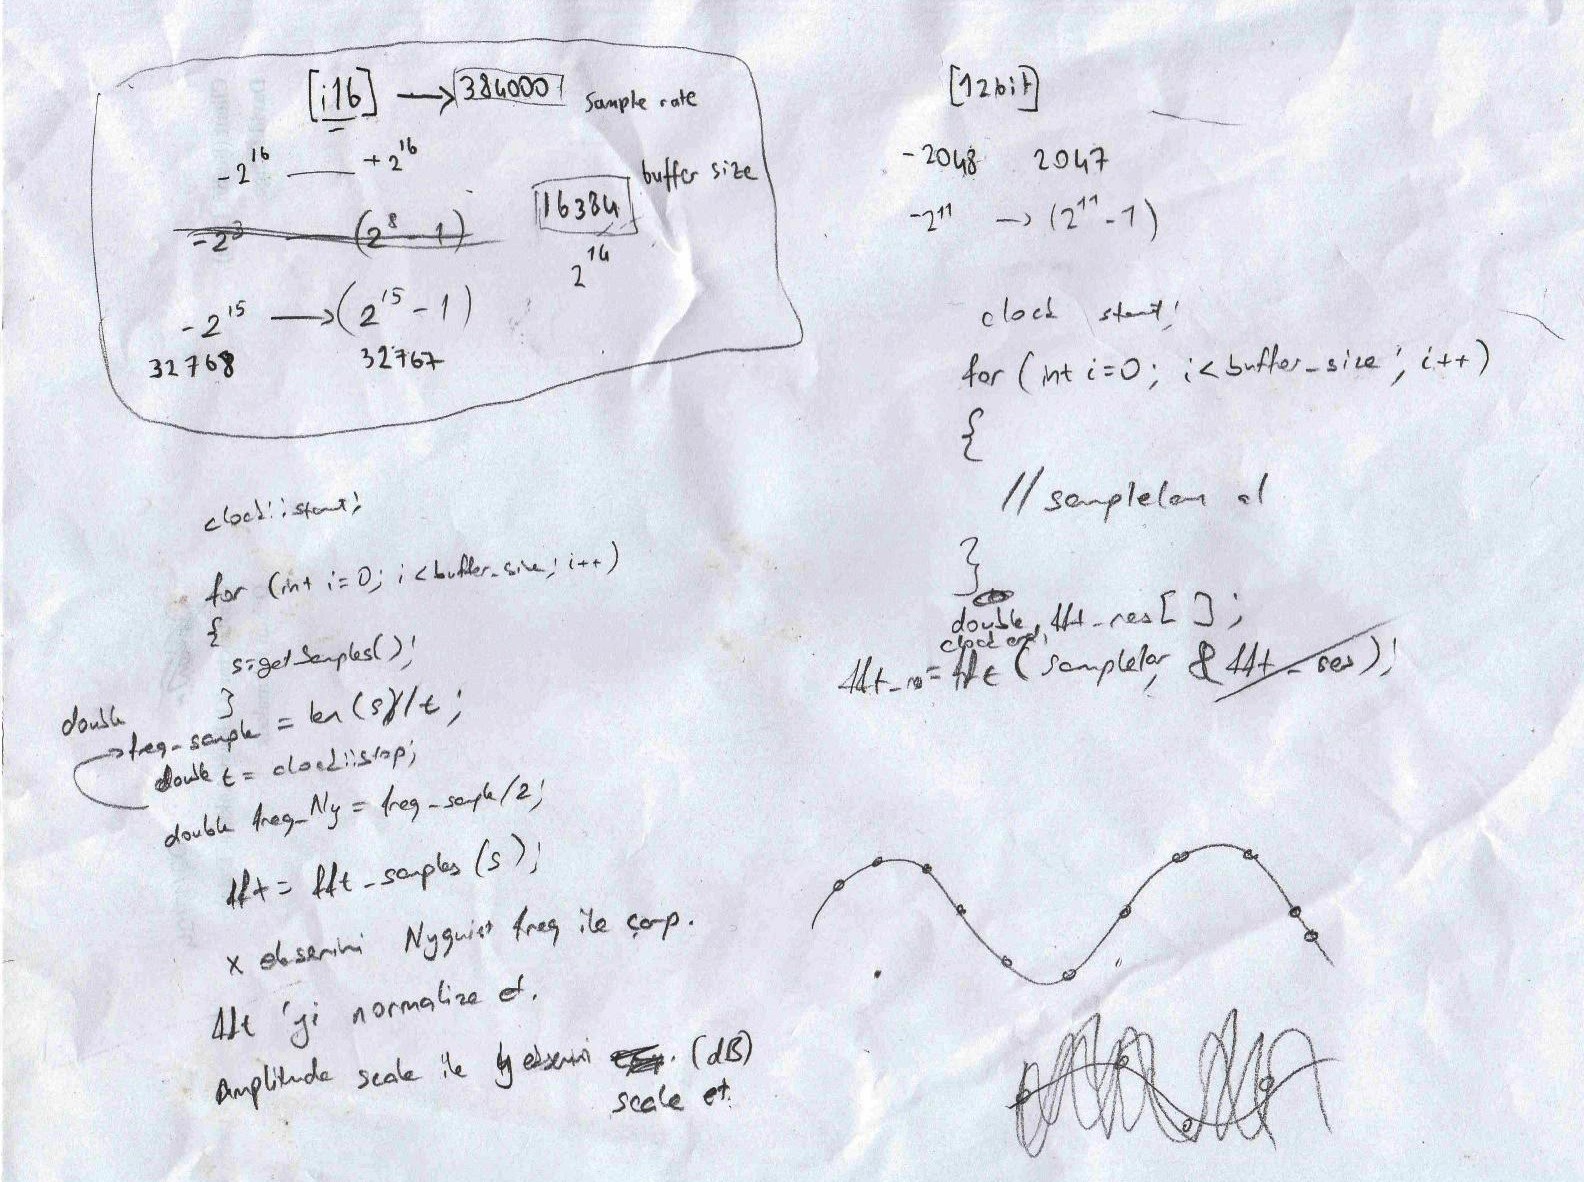 [i16] → 384000 sample rate
-2^16 — +2^16
buffer size
16384
-2^8 — (2^8 - 1)
2^14
-2^15 → (2^15 - 1)
32768 32767
clock::start;
for (int i=0; i<buffer_size; i++)
{
s=getSamples();
}
double
freq_sample = len(s)/t;
double t = clock::stop;
double freq_Ny = freq_sample/2;
fft = fft_samples(s);
x eksenini Nyquist freq ile çarp.
fft 'yi normalize et.
Amplitude scale ile y eksenini (dB)
scale et.
[12bit]
-2048 2047
-2^11 → (2^11 - 1)
clock start;
for (int i=0; i<buffer_size; i++)
{
//sampleları al
}
double fft_res[ ];
clock end;
fft_res = fft (sampleler, & fft_res);